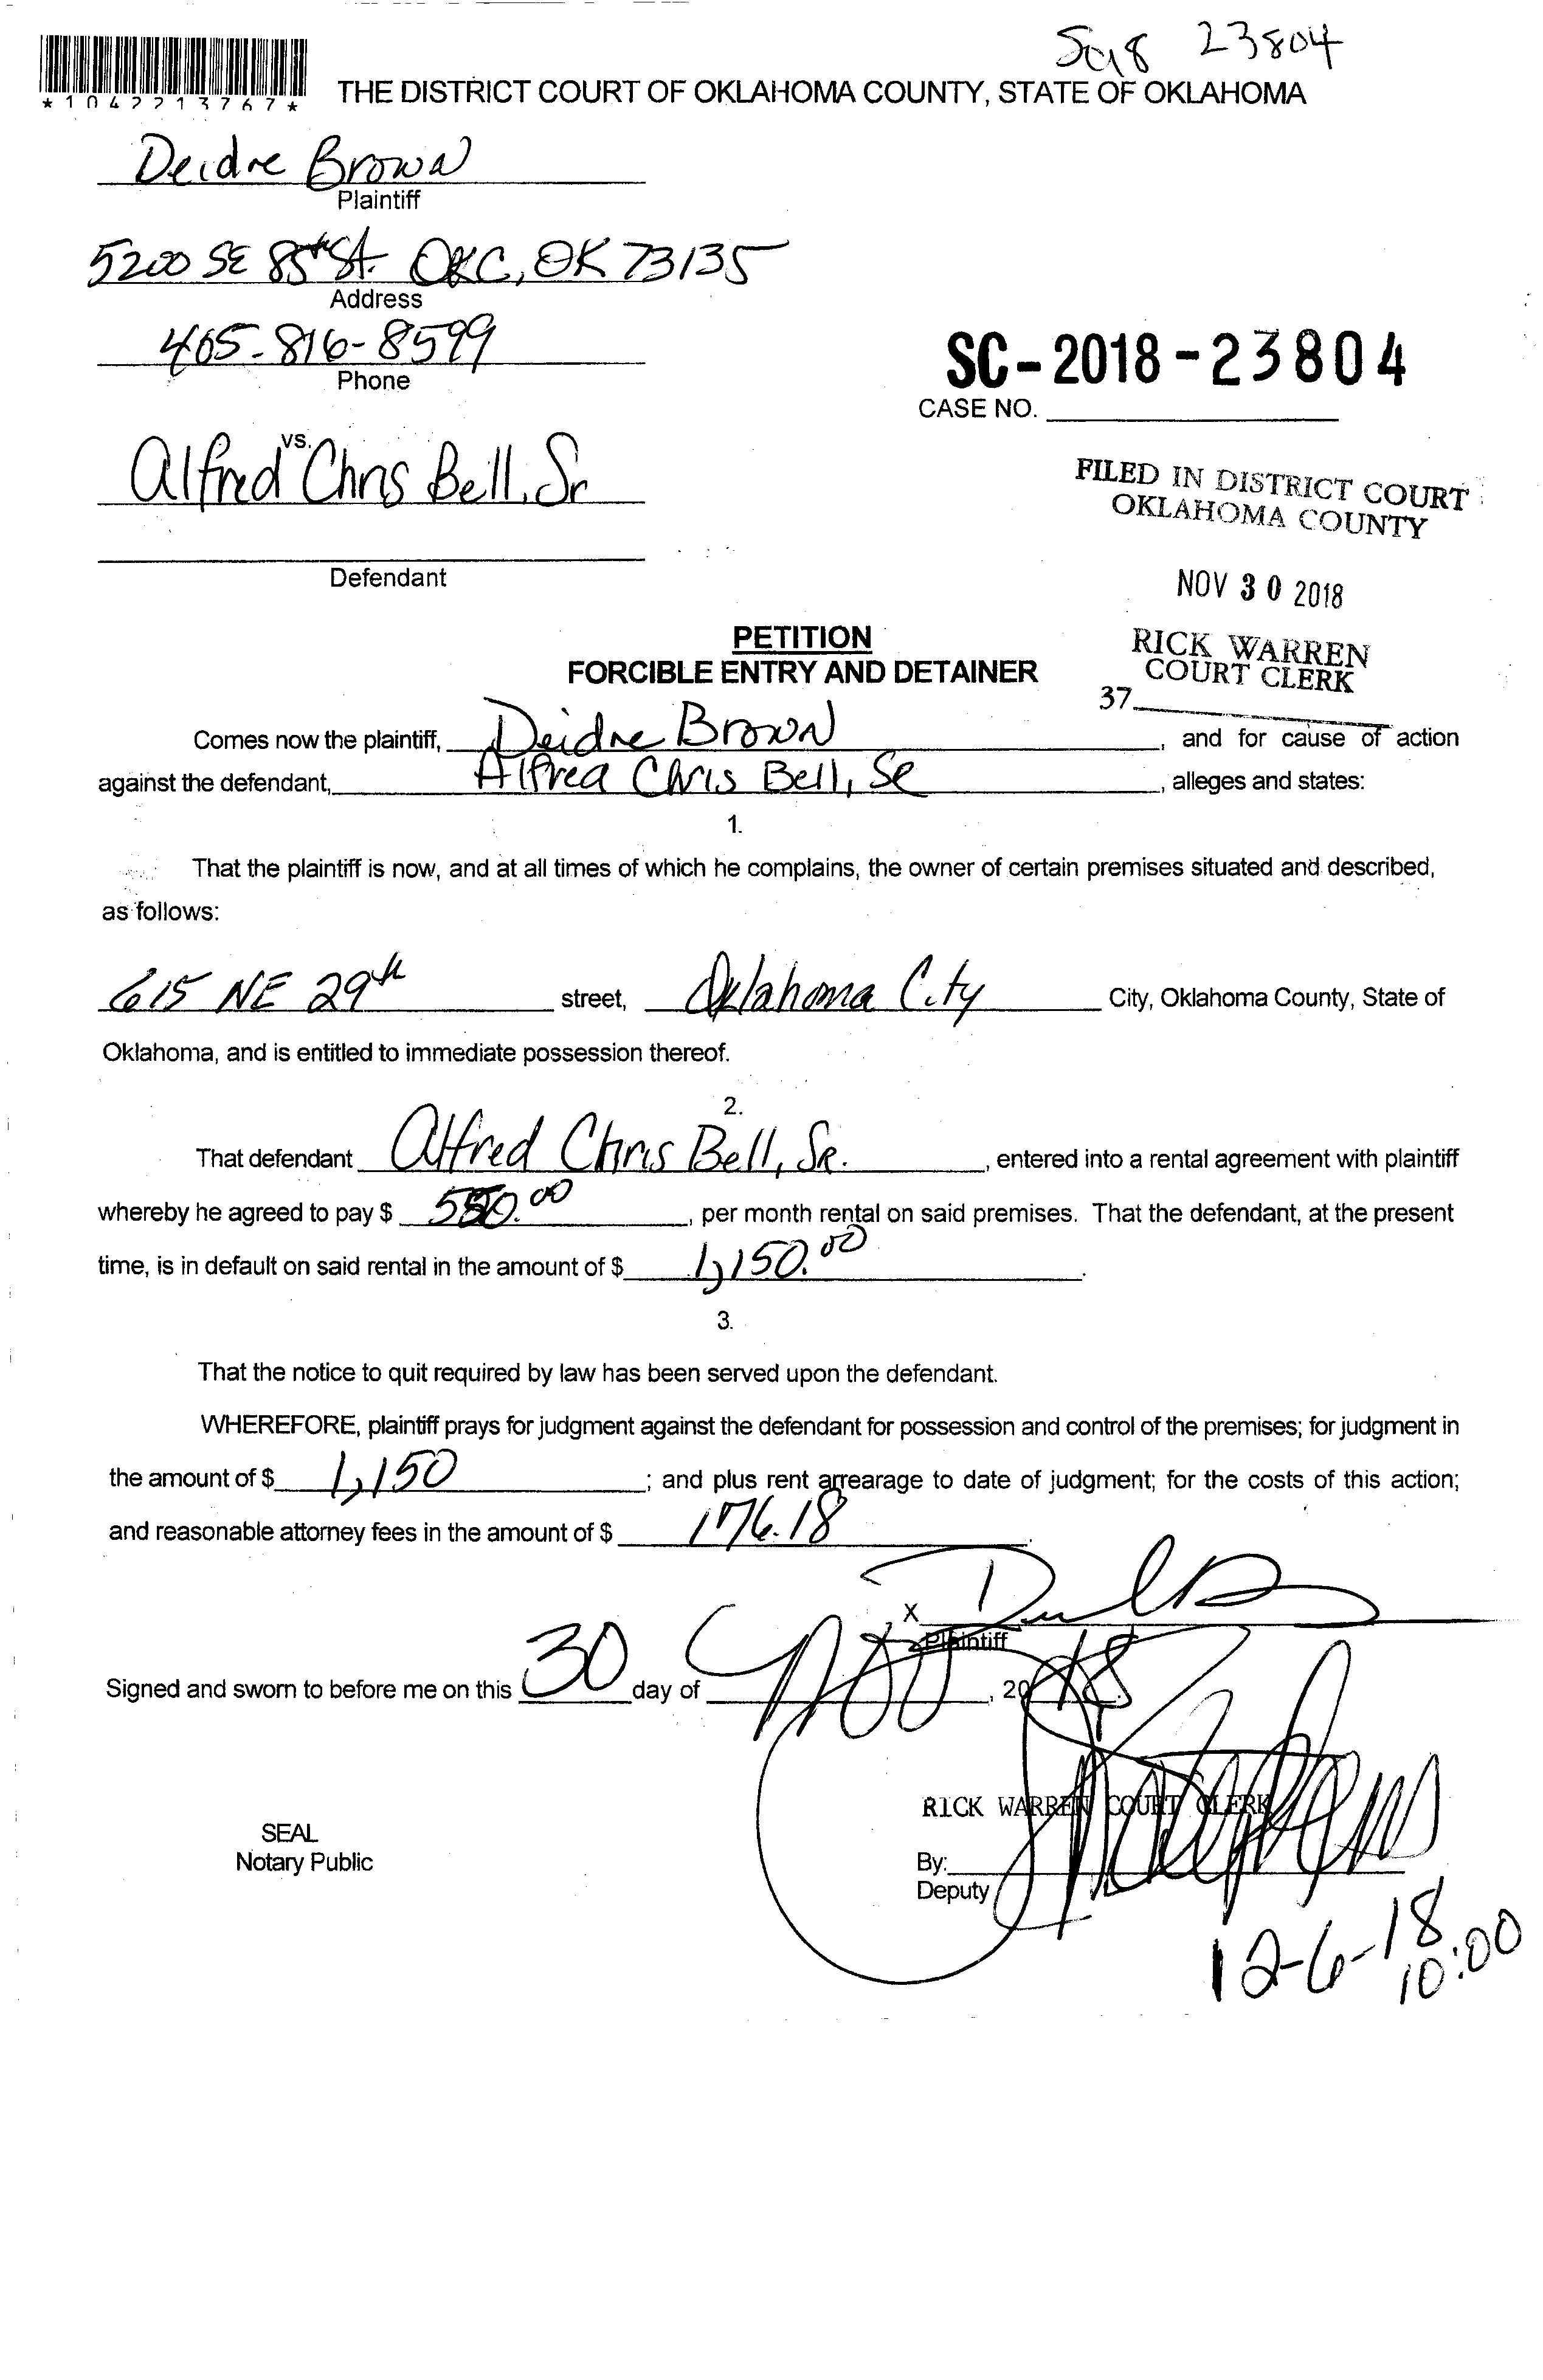 SC18 23804
*1042213767*
THE DISTRICT COURT OF OKLAHOMA COUNTY, STATE OF OKLAHOMA
Deidre Brown
Plaintiff
5200 SE 85th St. OKC, OK 73135
Address
405-816-8599
Phone
SC-2018-23804
CASE NO.
vs.
Alfred Chris Bell, Sr
Defendant
FILED IN DISTRICT COURT
OKLAHOMA COUNTY
NOV 30 2018
RICK WARREN
COURT CLERK
37
PETITION
FORCIBLE ENTRY AND DETAINER
Comes now the plaintiff, Deidre Brown, and for cause of action
against the defendant, Alfred Chris Bell, Sr, alleges and states:
1.
That the plaintiff is now, and at all times of which he complains, the owner of certain premises situated and described,
as follows:
615 NE 29th street, Oklahoma City City, Oklahoma County, State of
Oklahoma, and is entitled to immediate possession thereof.
2.
That defendant Alfred Chris Bell, Sr., entered into a rental agreement with plaintiff
whereby he agreed to pay $ , per month rental on said premises. That the defendant, at the present
time, is in default on said rental in the amount of $ 1,150.00.
3.
That the notice to quit required by law has been served upon the defendant.
WHEREFORE, plaintiff prays for judgment against the defendant for possession and control of the premises; for judgment in
the amount of $ 1,150; and plus rent arrearage to date of judgment; for the costs of this action;
and reasonable attorney fees in the amount of $ 176.18.
X
Plaintiff
Signed and sworn to before me on this 30 day of Nov, 2018.
RICK WARREN COURT CLERK
SEAL
Notary Public
By:
Deputy
12-6-18
10:00